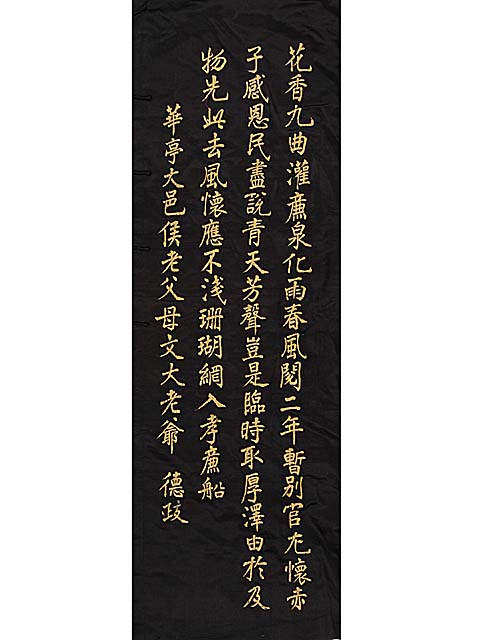 花香九曲灌廉泉化雨春風閱二年暫別官尤懷赤
子感恩民盡說青天芳聲豈是臨時取厚澤由於及
物先此去風懷應不淺珊瑚網入孝廉船
華亭大邑侯老父母文大老爺 德政